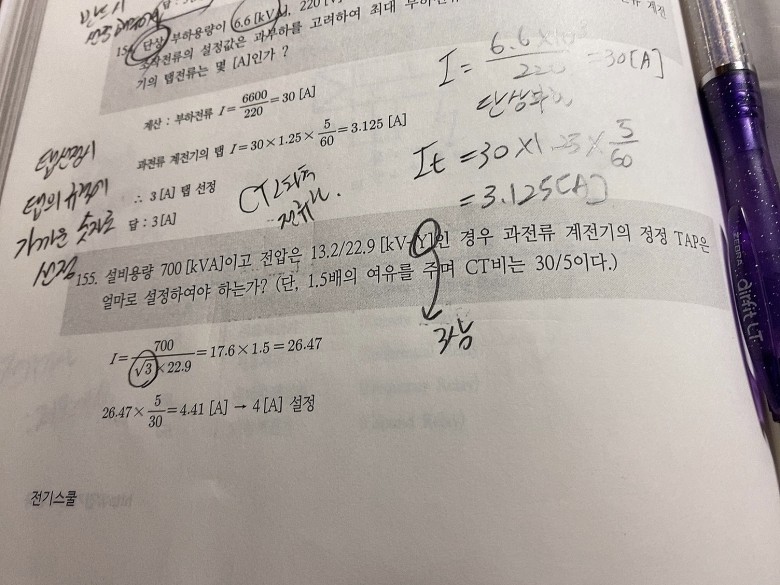 반드시
답 : 3
154. 단상 부하용량이 6.6 [kVA], 220 [V]
조작전류의 설정값은 과부하를 고려하여 최대 부하전류
기의 탭전류는 몇 [A]인가 ?
계산 : 부하전류 I = 6600/220 = 30 [A]
과전류 계전기의 탭 I = 30 × 1.25 × 5/60 = 3.125 [A]
∴ 3 [A] 탭 선정
답 : 3 [A]
I = 6.6 × 10³/220 = 30 [A]
It = 30 × 1.25 × 5/60
= 3.125 [A]
CT 2차측
전류
탭선정시
탭의 규격에
가까운 숫자로
선정
155. 설비용량 700 [kVA]이고 전압은 13.2/22.9 [kV-Y]인 경우 과전류 계전기의 정정 TAP은
얼마로 설정하여야 하는가? (단, 1.5배의 여유를 주며 CT비는 30/5이다.)
I = 700/√3 × 22.9 = 17.6 × 1.5 = 26.47
3상
26.47 × 5/30 = 4.41 [A] → 4 [A] 설정
전기스쿨
ZEBRA airfit LT